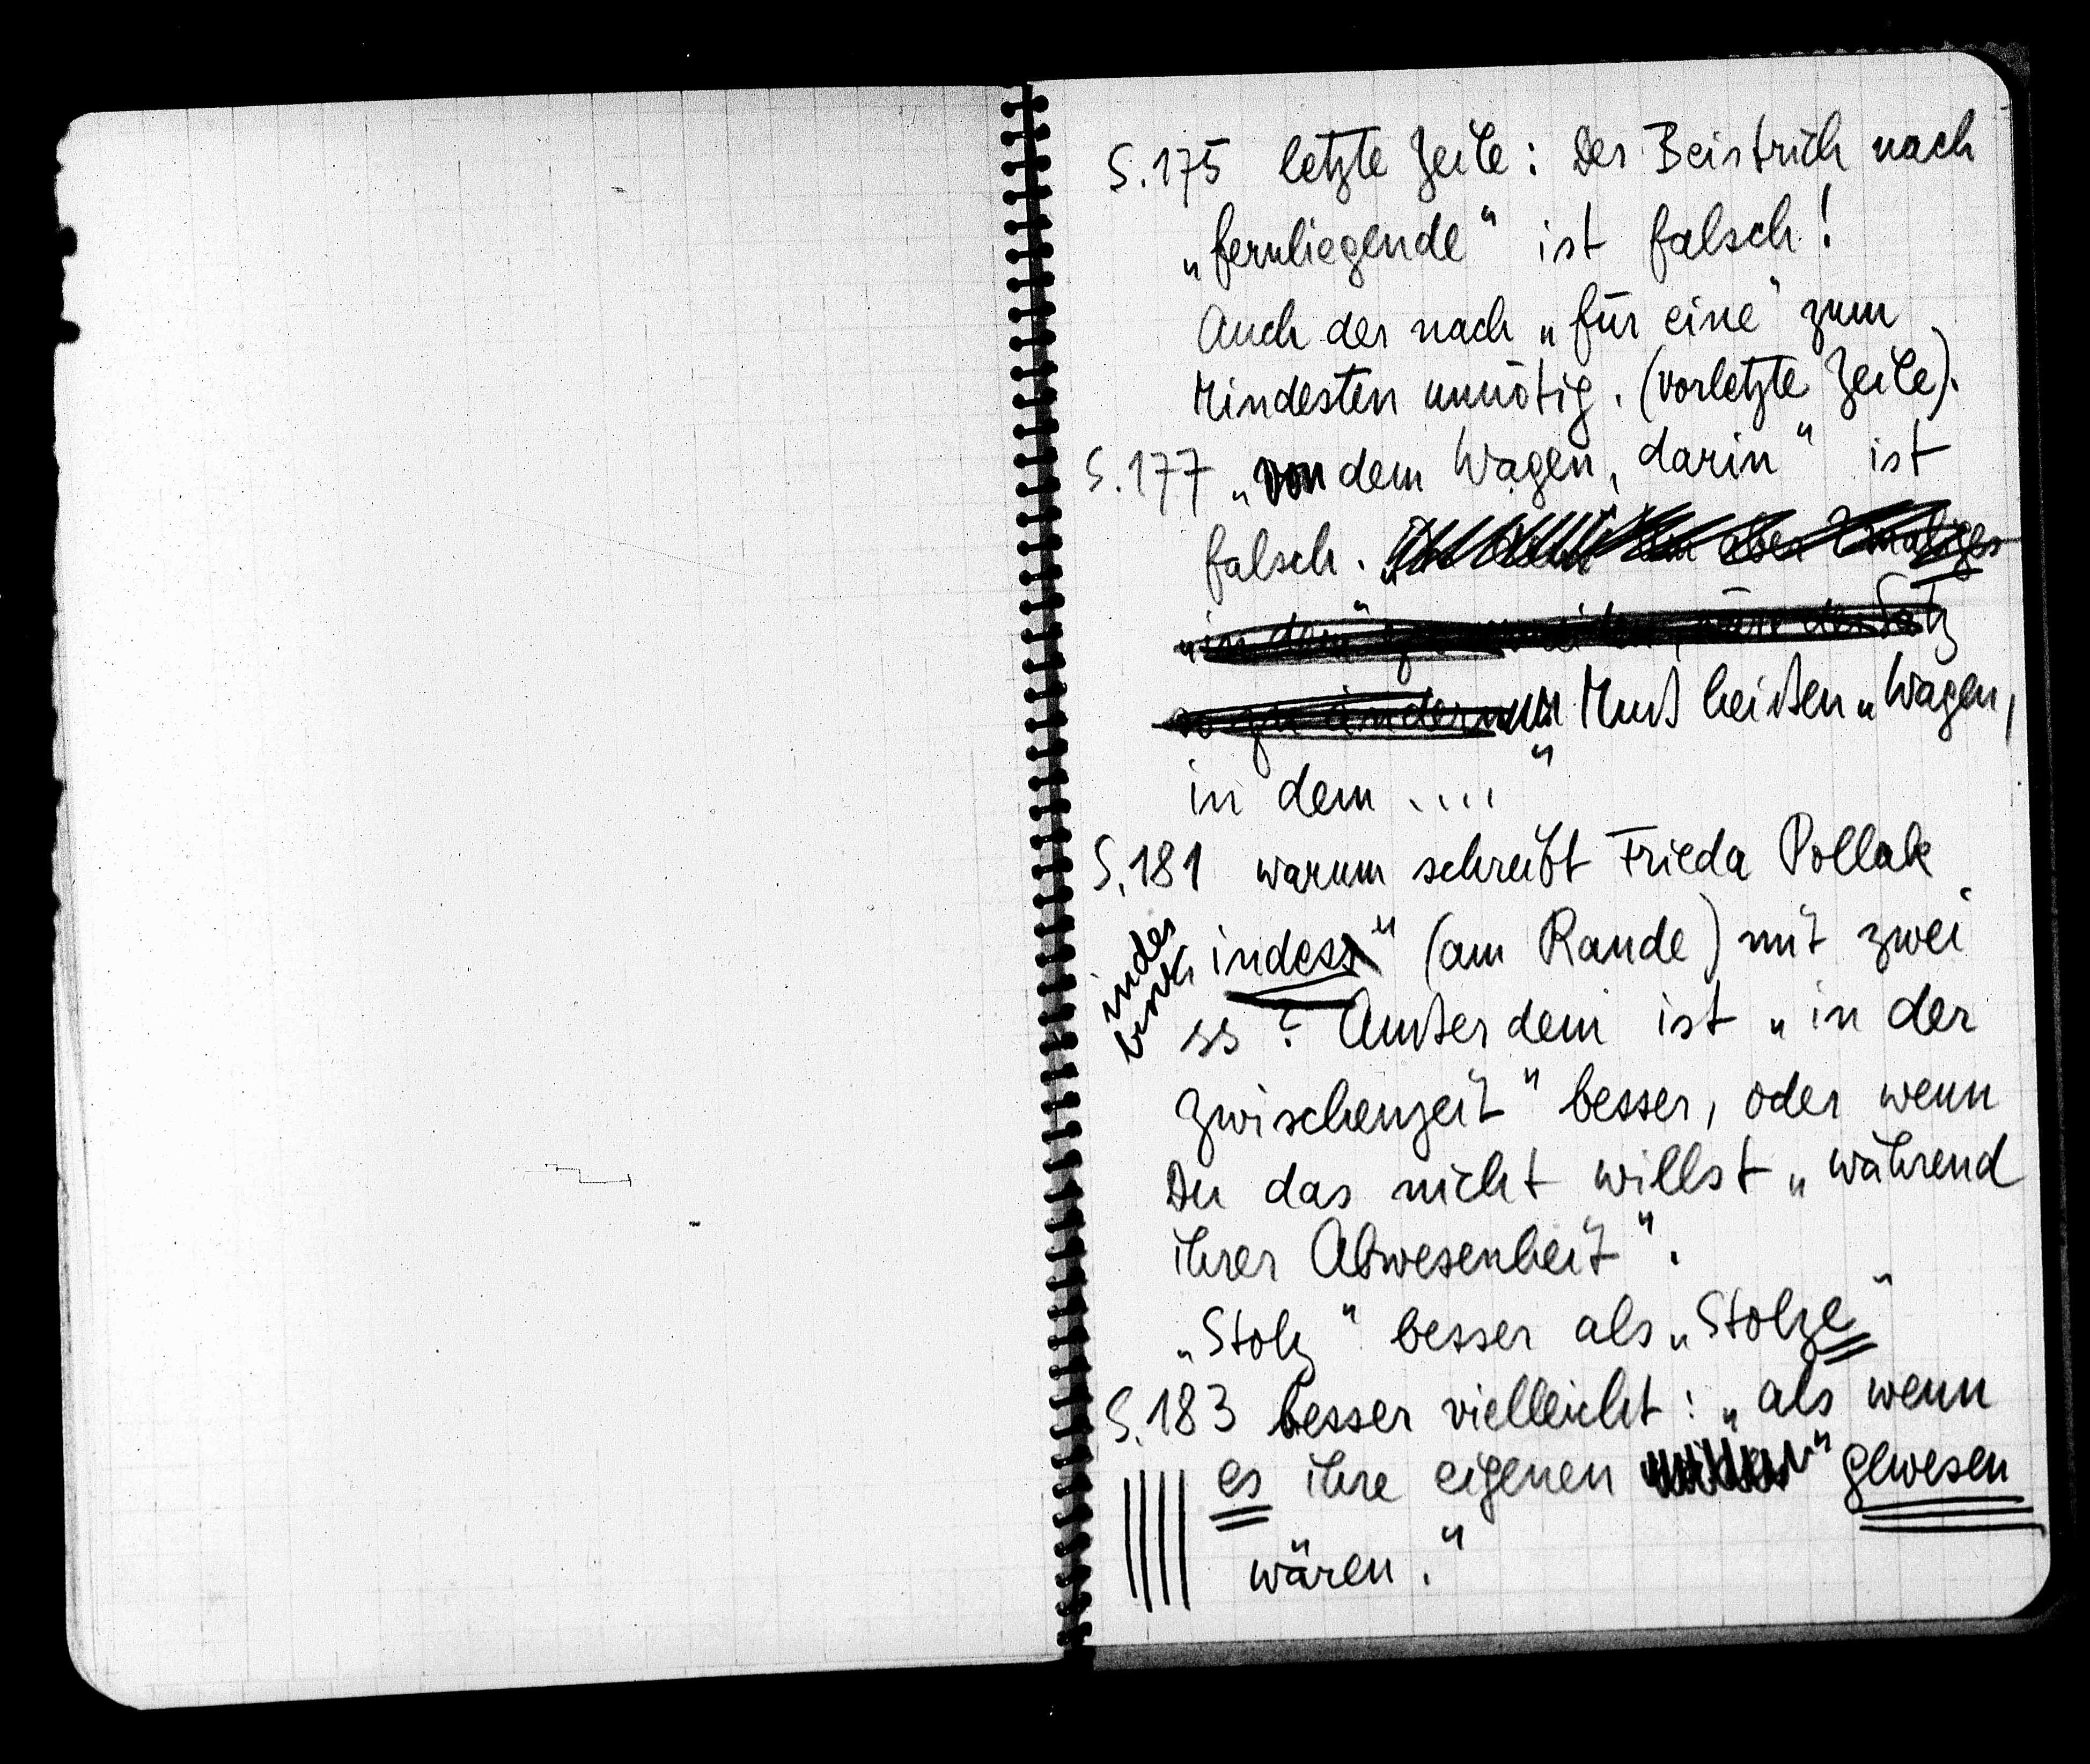 S.175 letzte Zeile: Der Beistrich nach
„fernliegende" ist falsch!
Auch der nach „für eine" zum
Mindesten unnötig. (vorletzte Zeile).
S.177 „von dem Wagen, darin" ist
falsch. aber 2maliges
„in dem" zu vermeiden, wäre der Satz
so zu ändern Muß heißen „Wagen,
in dem ...."
S.181 warum schreibt Frieda Pollak
indess" (am Rande) mit zwei
indes
ss? Außerdem ist „in der
Zwischenzeit" besser, oder wenn
Du das nicht willst „während
ihrer Abwesenheit".
„Stolz" besser als „Stolze"
S.183 besser vielleicht: „als wenn
es ihre eigenen gewesen
wären."